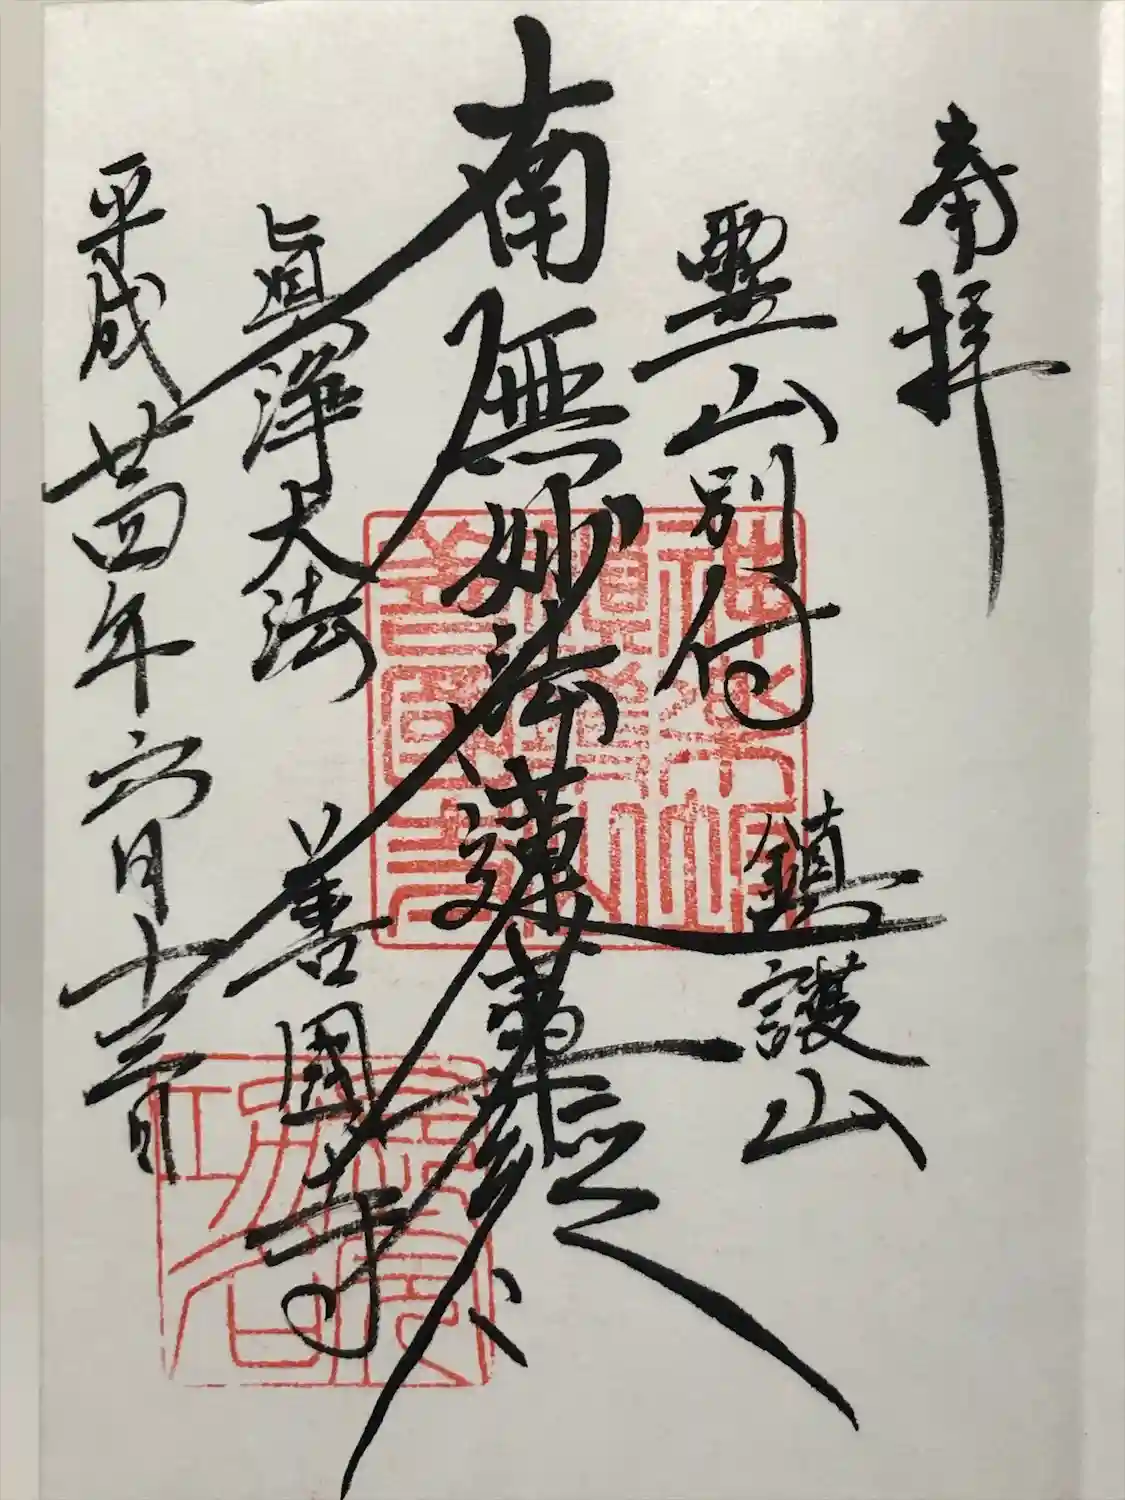 奉拝
霊山別付
鎮護山
南無妙法蓮華経
眞浄大法
善國寺
平成廿四年六月十三日
善國寺